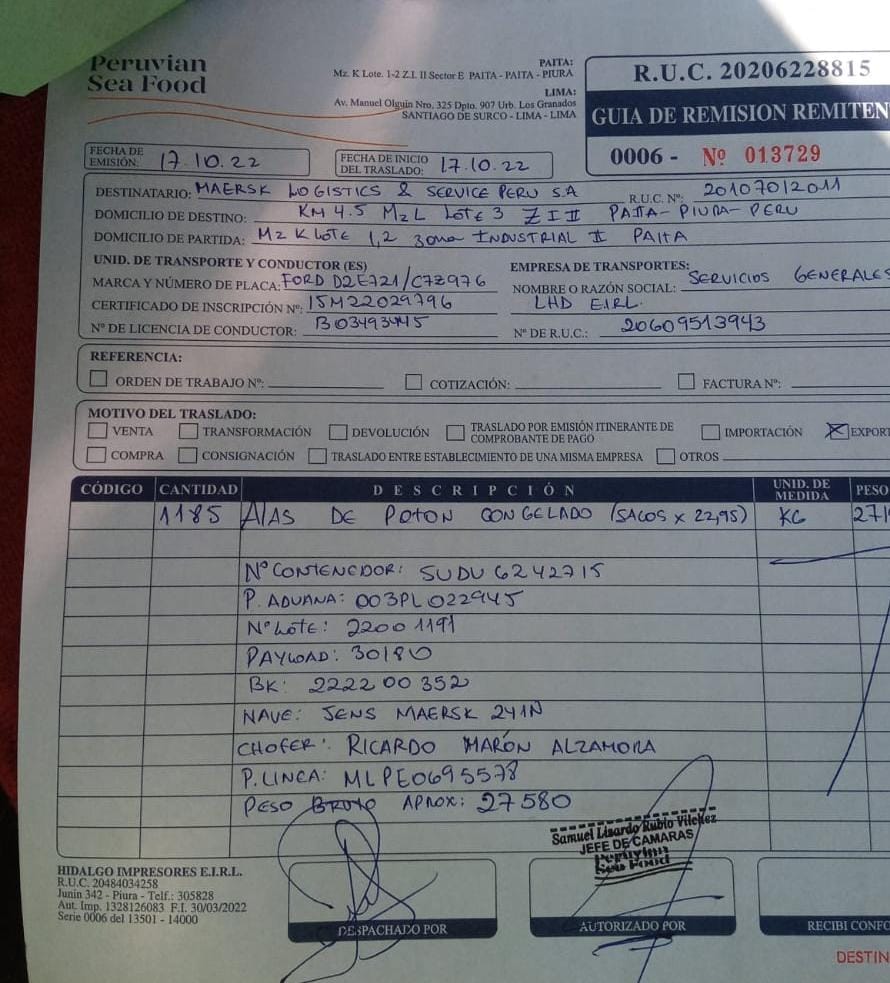 Peruvian
Sea Food
PAITA:
Mz. K Lote. 1-2 Z.I. II Sector E PAITA - PAITA - PIURA
LIMA:
Av. Manuel Olguin Nro. 325 Dpto. 907 Urb. Los Granados
SANTIAGO DE SURCO - LIMA - LIMA
R.U.C. 20206228815
GUIA DE REMISION REMITEN
0006 - Nº 013729
FECHA DE EMISIÓN: 17.10.22
FECHA DE INICIO DEL TRASLADO: 17.10.22
DESTINATARIO: MAERSK LOGISTICS & SERVICE PERU S.A R.U.C. Nº: 20107012011
DOMICILIO DE DESTINO: KM 4.5 Mz L LOTE 3 Z I II PAITA - PIURA - PERU
DOMICILIO DE PARTIDA: Mz K LOTE 1,2 zona INDUSTRIAL II PAITA
UNID. DE TRANSPORTE Y CONDUCTOR (ES)
MARCA Y NÚMERO DE PLACA: FORD D2E721/C7Z976
CERTIFICADO DE INSCRIPCIÓN Nº: 15M22029796
Nº DE LICENCIA DE CONDUCTOR: B03493445
EMPRESA DE TRANSPORTES:
NOMBRE O RAZÓN SOCIAL: SERVICIOS GENERALES
LHD E.I.R.L.
Nº DE R.U.C.: 20609513943
REFERENCIA:
ORDEN DE TRABAJO Nº: COTIZACIÓN: FACTURA Nº:
MOTIVO DEL TRASLADO:
VENTA TRANSFORMACIÓN DEVOLUCIÓN TRASLADO POR EMISIÓN ITINERANTE DE COMPROBANTE DE PAGO IMPORTACIÓN EXPORT
COMPRA CONSIGNACIÓN TRASLADO ENTRE ESTABLECIMIENTO DE UNA MISMA EMPRESA OTROS
CÓDIGO CANTIDAD DESCRIPCIÓN UNID. DE MEDIDA PESO
1185 Alas DE POTON CONGELADO (SACOS x 22,95) KG 271
Nº CONTENEDOR: SUDU 6242715
P. ADUANA: 003PL022945
Nº LOTE: 22001191
PAYLOAD: 30180
BK: 222200352
NAVE: JENS MAERSK 241N
CHOFER: RICARDO MARÓN ALZAMORA
P. LINEA: MLPE0695578
PESO BRUTO APROX: 27580
Samuel Lizardo Rubio Vilchez
JEFE DE CAMARAS
Peruvian
Sea Food
HIDALGO IMPRESORES E.I.R.L.
R.U.C. 20484034258
Junin 342 - Piura - Telf.: 305828
Aut. Imp. 1328126083 F.I. 30/03/2022
Serie 0006 del 13501 - 14000
DESPACHADO POR
AUTORIZADO POR
RECIBI CONFO
DESTIN